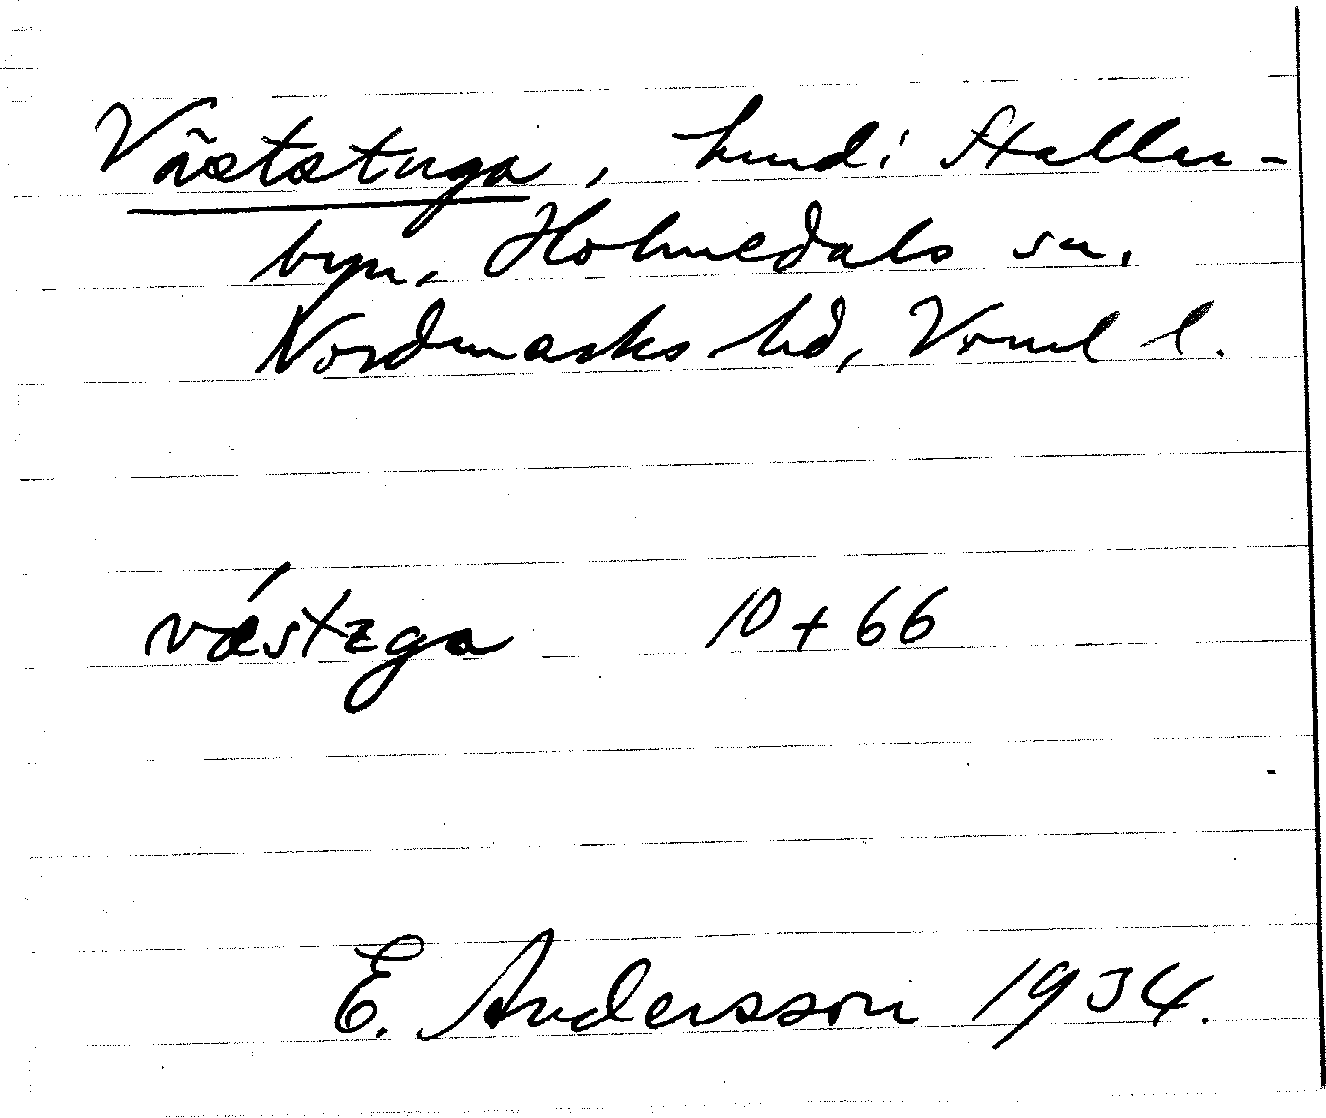 Väststuga, hmd i Staller-
byn, Holmedals sn.
Nordmarks hd, Vrml l.
vǽstᴇga 10 + 66
E. Andersson 1934.